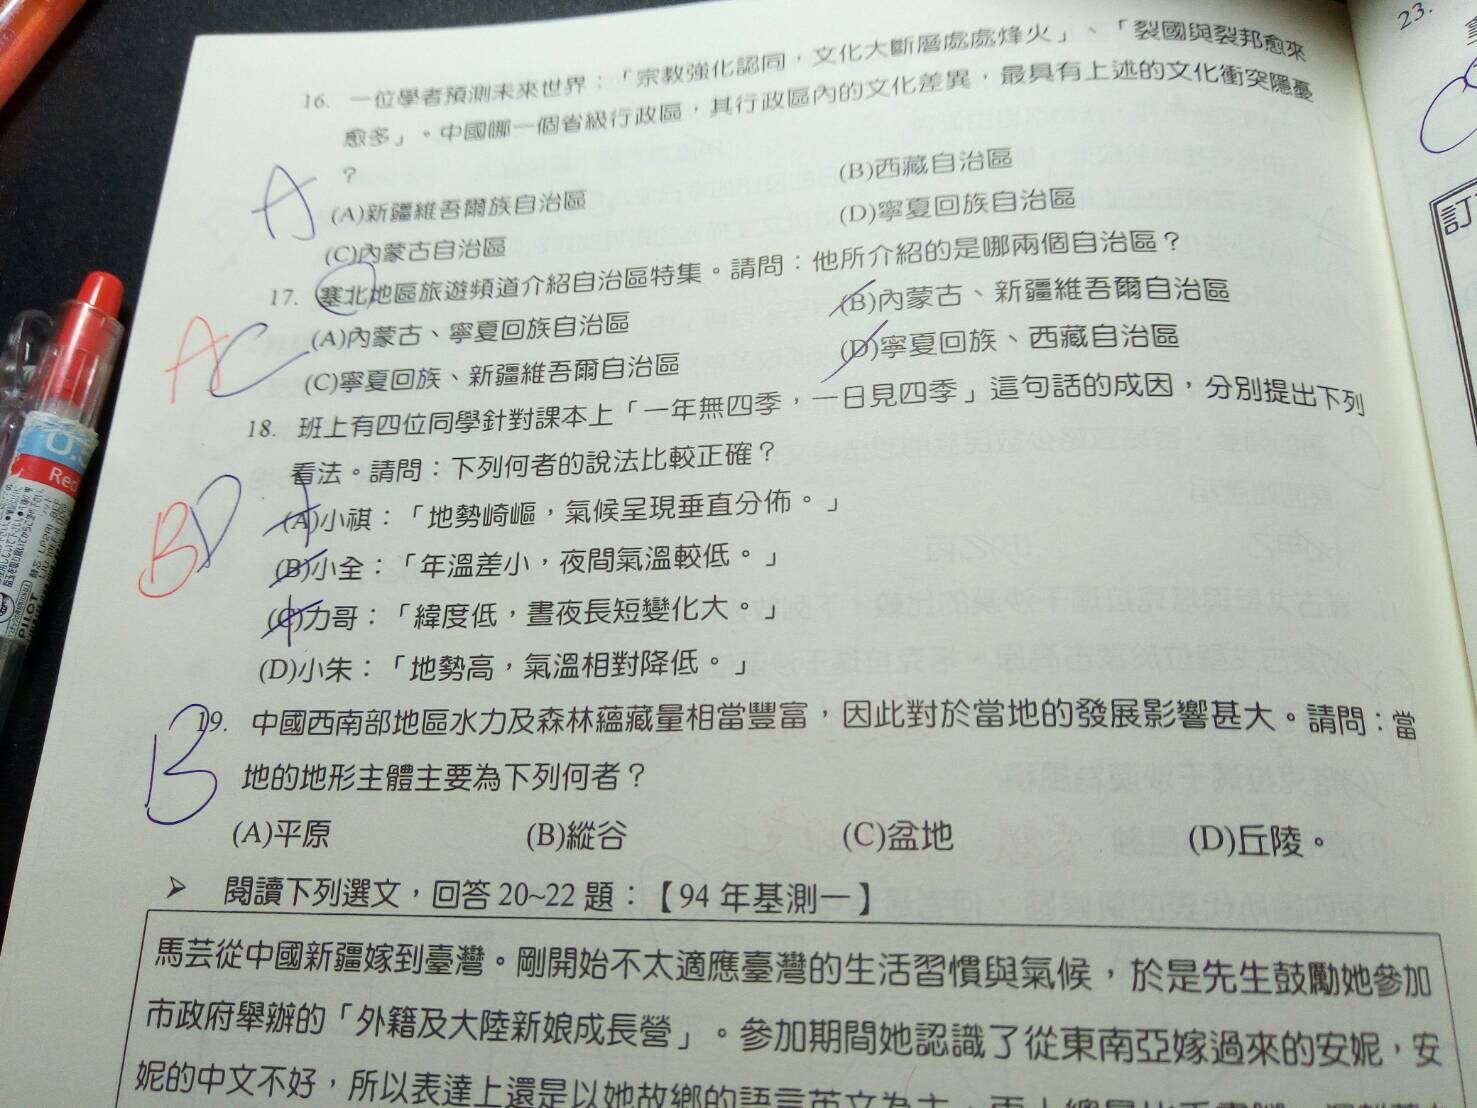 23.
16. 一位學者預測未來世界：「宗教強化認同，文化大斷層處處烽火」、「裂國與裂邦愈來
愈多」。中國哪一個省級行政區，其行政區內的文化差異，最具有上述的文化衝突隱憂
？
A
(A)新疆維吾爾族自治區 (B)西藏自治區
(C)內蒙古自治區 (D)寧夏回族自治區
訂
17. 塞北地區旅遊頻道介紹自治區特集。請問：他所介紹的是哪兩個自治區？
A C
(A)內蒙古、寧夏回族自治區 (B)內蒙古、新疆維吾爾自治區
(C)寧夏回族、新疆維吾爾自治區 (D)寧夏回族、西藏自治區
18. 班上有四位同學針對課本上「一年無四季，一日見四季」這句話的成因，分別提出下列
看法。請問：下列何者的說法比較正確？
B D
(A)小祺：「地勢崎嶇，氣候呈現垂直分佈。」
(B)小全：「年溫差小，夜間氣溫較低。」
(C)力哥：「緯度低，晝夜長短變化大。」
(D)小朱：「地勢高，氣溫相對降低。」
19. 中國西南部地區水力及森林蘊藏量相當豐富，因此對於當地的發展影響甚大。請問：當
B
地的地形主體主要為下列何者？
(A)平原 (B)縱谷 (C)盆地 (D)丘陵。
➤ 閱讀下列選文，回答 20~22 題：【94 年基測一】
馬芸從中國新疆嫁到臺灣。剛開始不太適應臺灣的生活習慣與氣候，於是先生鼓勵她參加
市政府舉辦的「外籍及大陸新娘成長營」。參加期間她認識了從東南亞嫁過來的安妮，安
妮的中文不好，所以表達上還是以她故鄉的語言英文為主，兩人總是比手畫腳
0.5
Red
PILOT